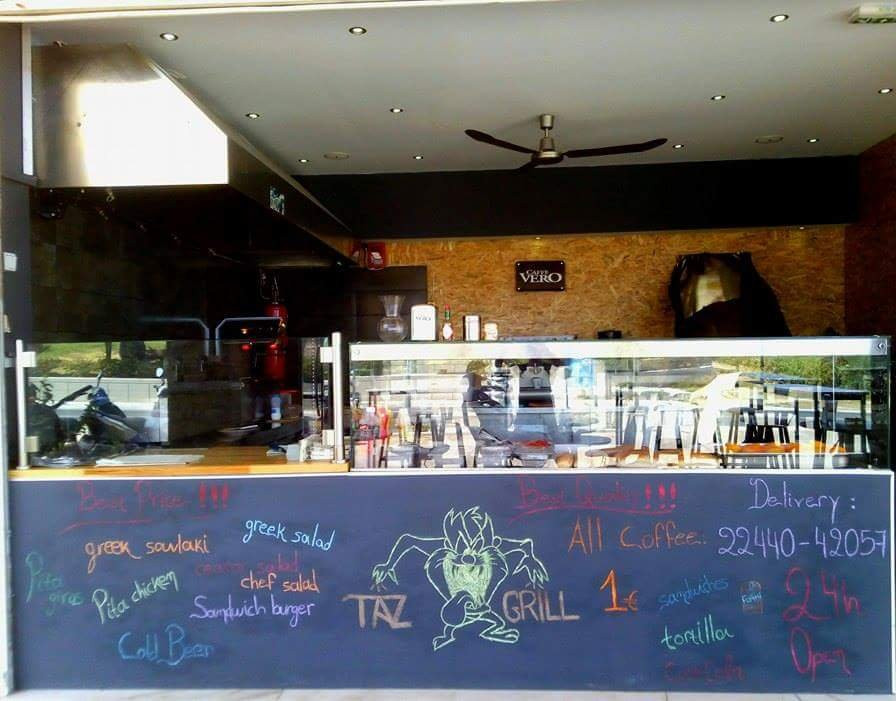 CAFFE
VERO
Best Price !!!
greek souvlaki
greek salad
ceasar salad
chef salad
Pita
giros
Pita chicken
Samdwich burger
Cold Beer
TAZ
GRILL
Best Quality !!!
All Coffee:
1€
Delivery :
22440-42057
sandwiches
tortilla
24h
Open